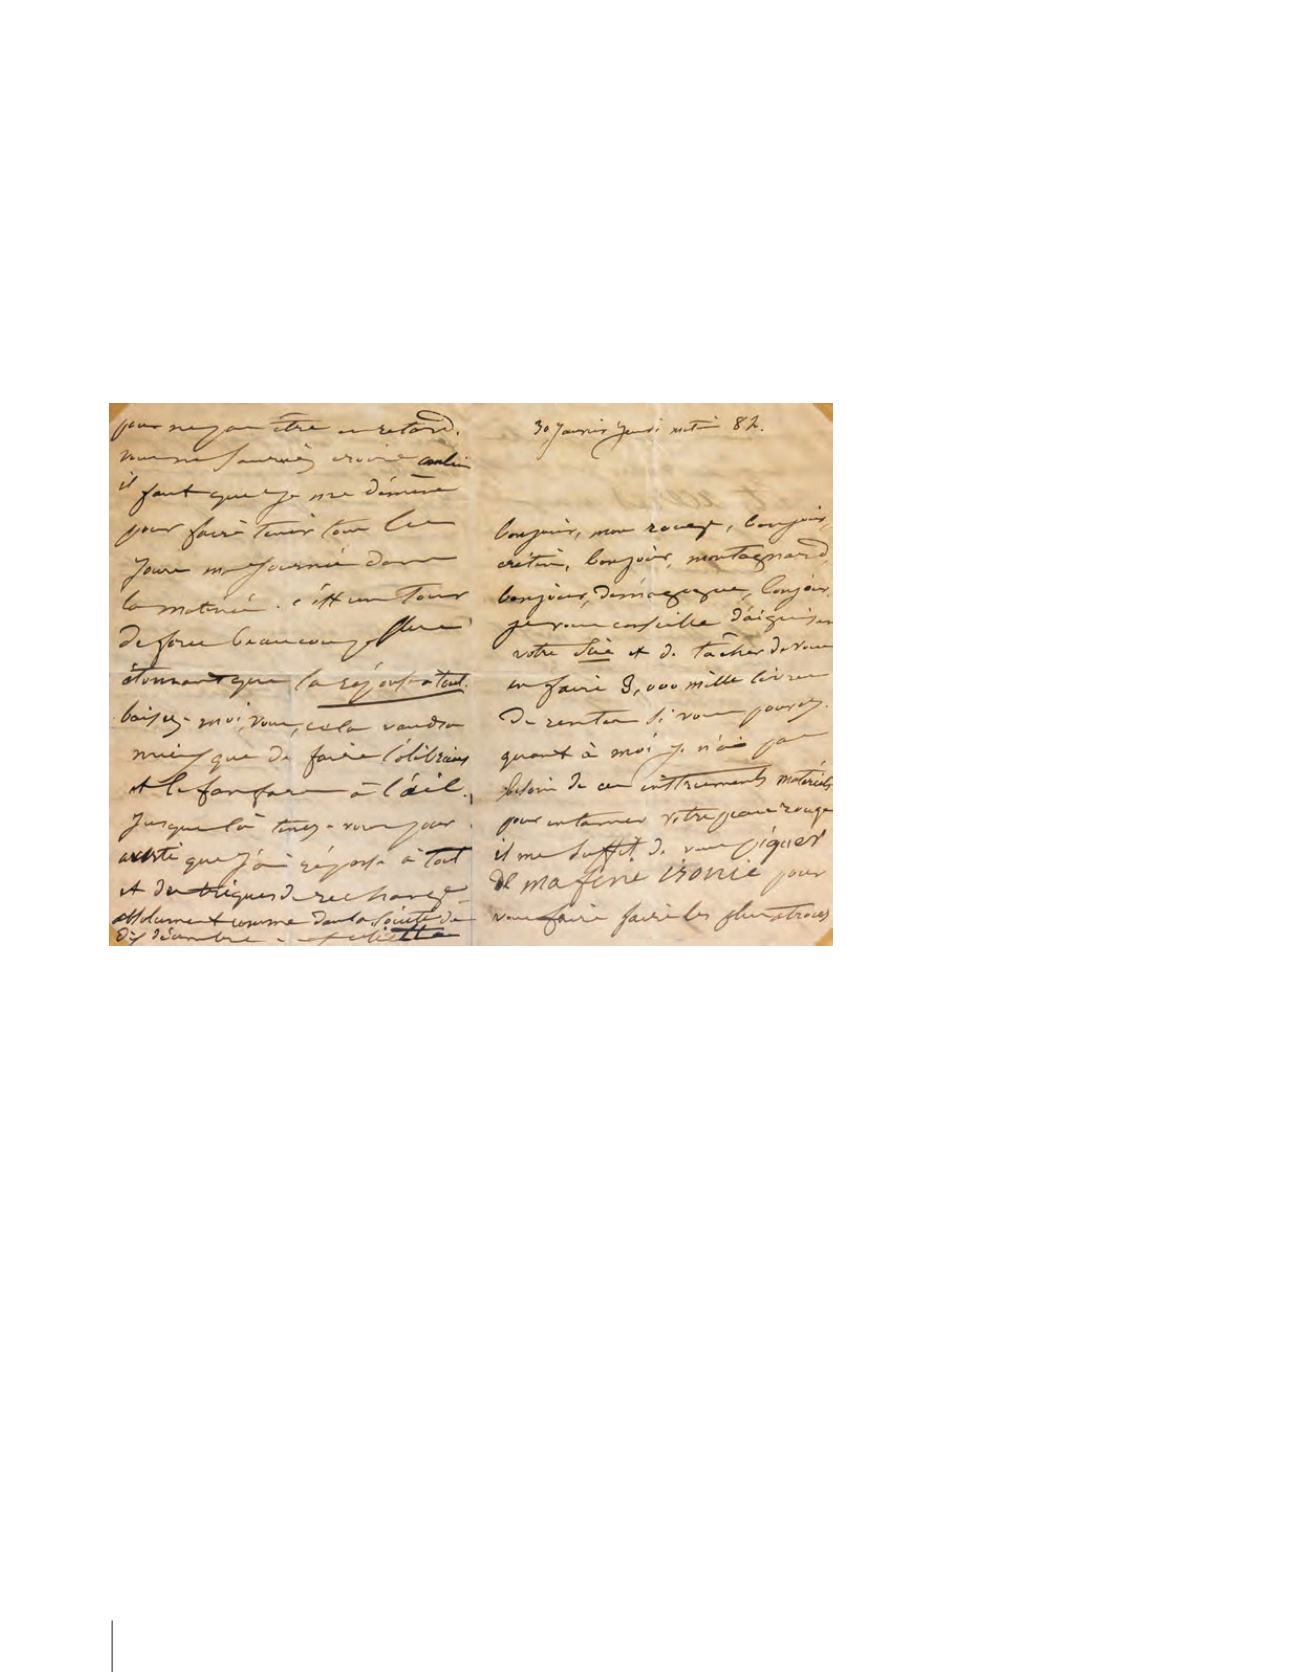 pour ne pas être en retard.
vous ne sauriez croire combien
il faut que je me démène
pour faire tenir tous les
jours ma journée dans
la matinée. c'est un tour
de force beaucoup plus
étonnant que la réponse à tout.
baisez-moi, vous, cela vaudra
mieux que de faire l'olibrius
et le fanfaron à l'ail.
Jusque là tenez-vous pour
averti que j'ai réponse à tout
et des triques de rechange
absolument comme dans la Société de
dix décembre. Juliette
30 Janvier Jeudi matin 82.
bonjour, mon rouge, bonjour,
crétin, bonjour, montagnard,
bonjour, démagogue, bonjour.
je vous conseille d'aiguiser
votre scie et de tâcher de vous
en faire 3,000 mille livres
de rentes si vous pouvez.
quant à moi je n'ai pas
besoin de ces instruments matériels
pour entamer votre peau rouge
il me suffit de vous piquer
de ma fine ironie pour
vous faire faire les plus atroces